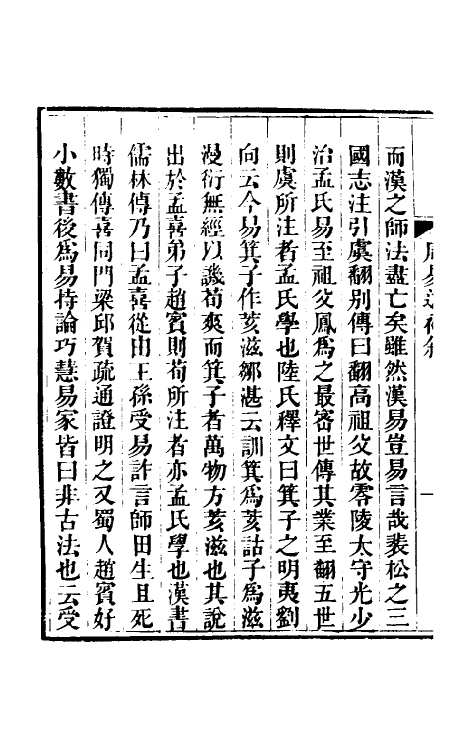 而漢之師法盡亡矣雖然漢易豈易言哉裴松之三
國志注引虞翻别傳曰翻高祖父故零陵太守光少
治孟氏易至祖父鳳為之最宻世傳其業至翻五世
則虞所注者孟氏學也陸氏釋文曰箕子之明夷劉
向云今易箕子作荄滋鄒湛云訓箕為荄詁子為滋
漫衍無經以譏荀爽而箕子者萬物方荄滋也其說
出於孟喜弟子趙賓則荀所注者亦孟氏學也漢書
儒林傳乃曰孟喜從田王孫受易詐言師田生且死
時獨傳喜同門梁邱賀疏通證明之又蜀人趙賓好
小數書後為易持論巧慧易家皆曰非古法也云受